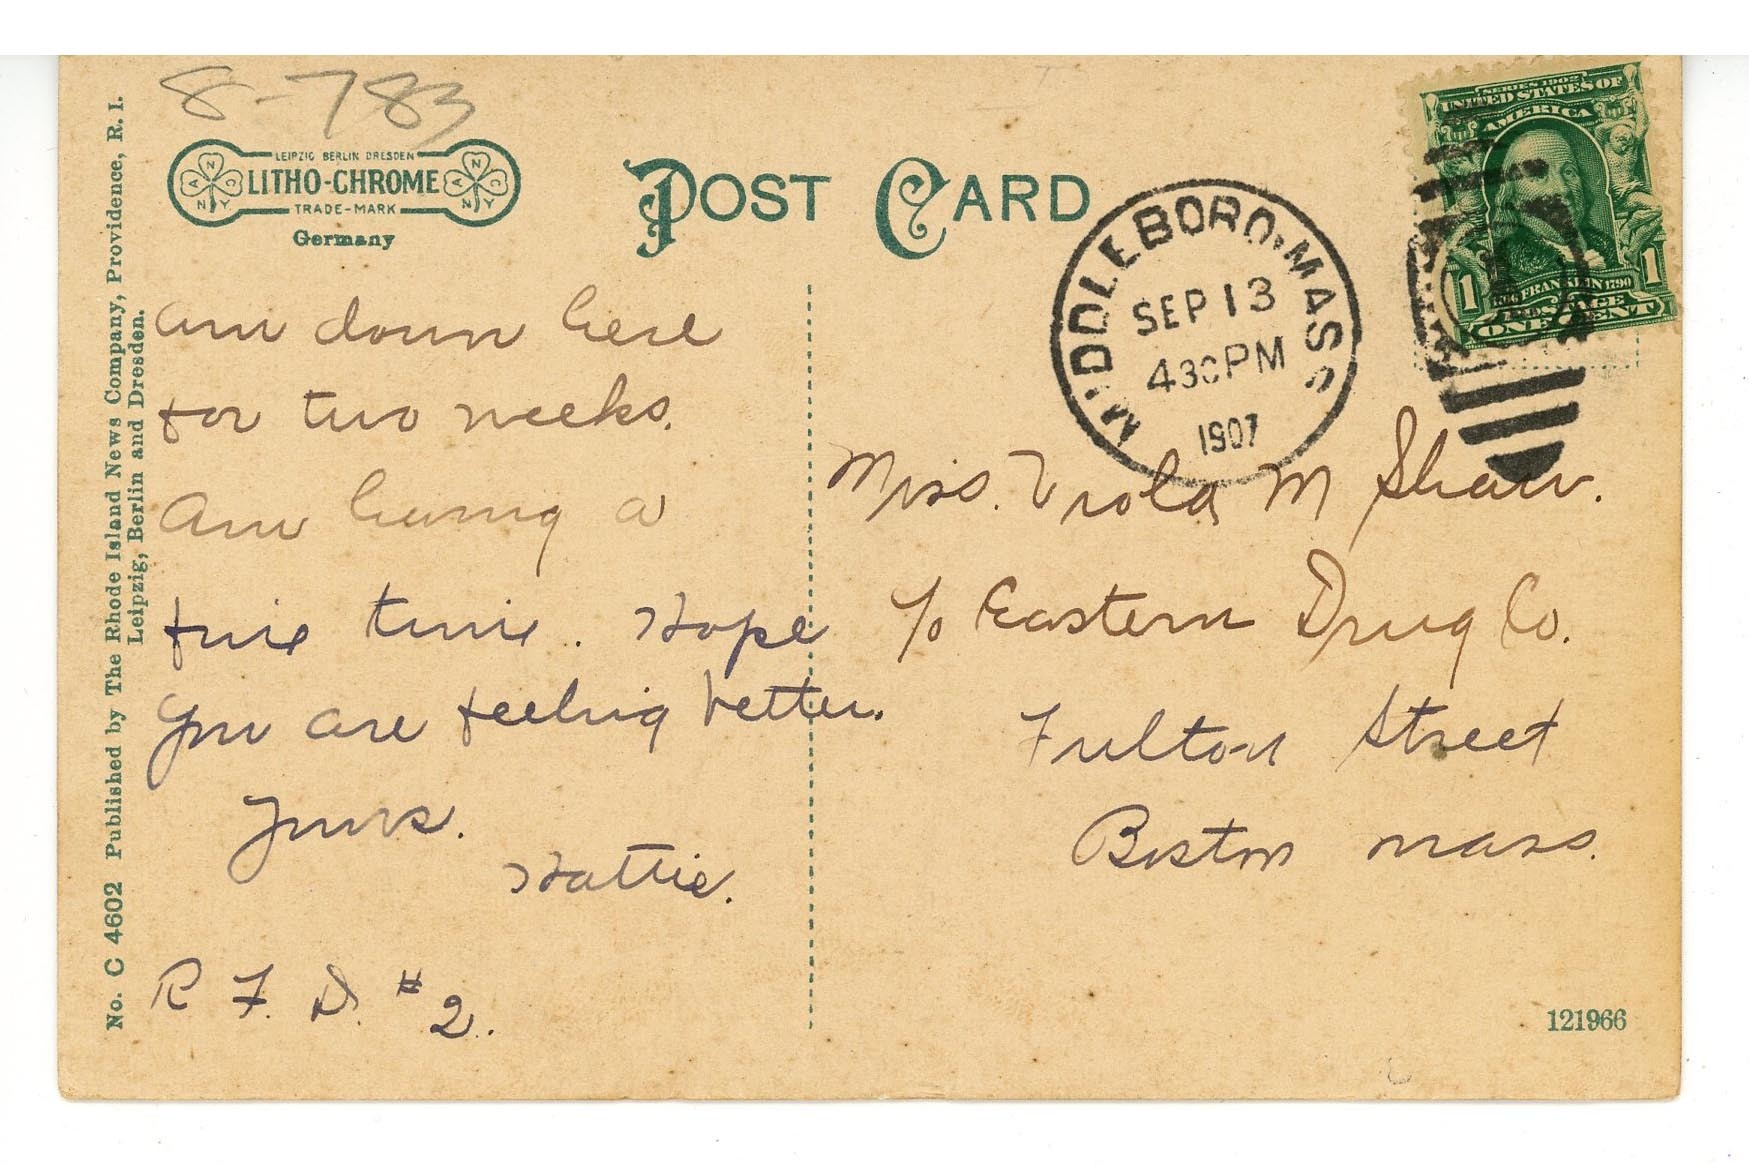 8-783
LEIPZIG BERLIN DRESDEN
LITHO-CHROME
TRADE-MARK
Germany
POST CARD
MIDDLEBORO, MASS.
SEP 13
430PM
1907
SERIES 1902
UNITED STATES OF
AMERICA
FRANKLIN 1790
1 1
POSTAGE
ONE CENT
am down here
for two weeks.
Am having a
fine time. Hope
you are feeling better.
Yours.
Hattie.
R F. D. # 2.
Miss. Viola M Shaw.
c/o Eastern Drug Co.
Fulton Street
Boston Mass.
121966
No. C 4602 Published by The Rhode Island News Company, Providence, R. I.
Leipzig, Berlin and Dresden.